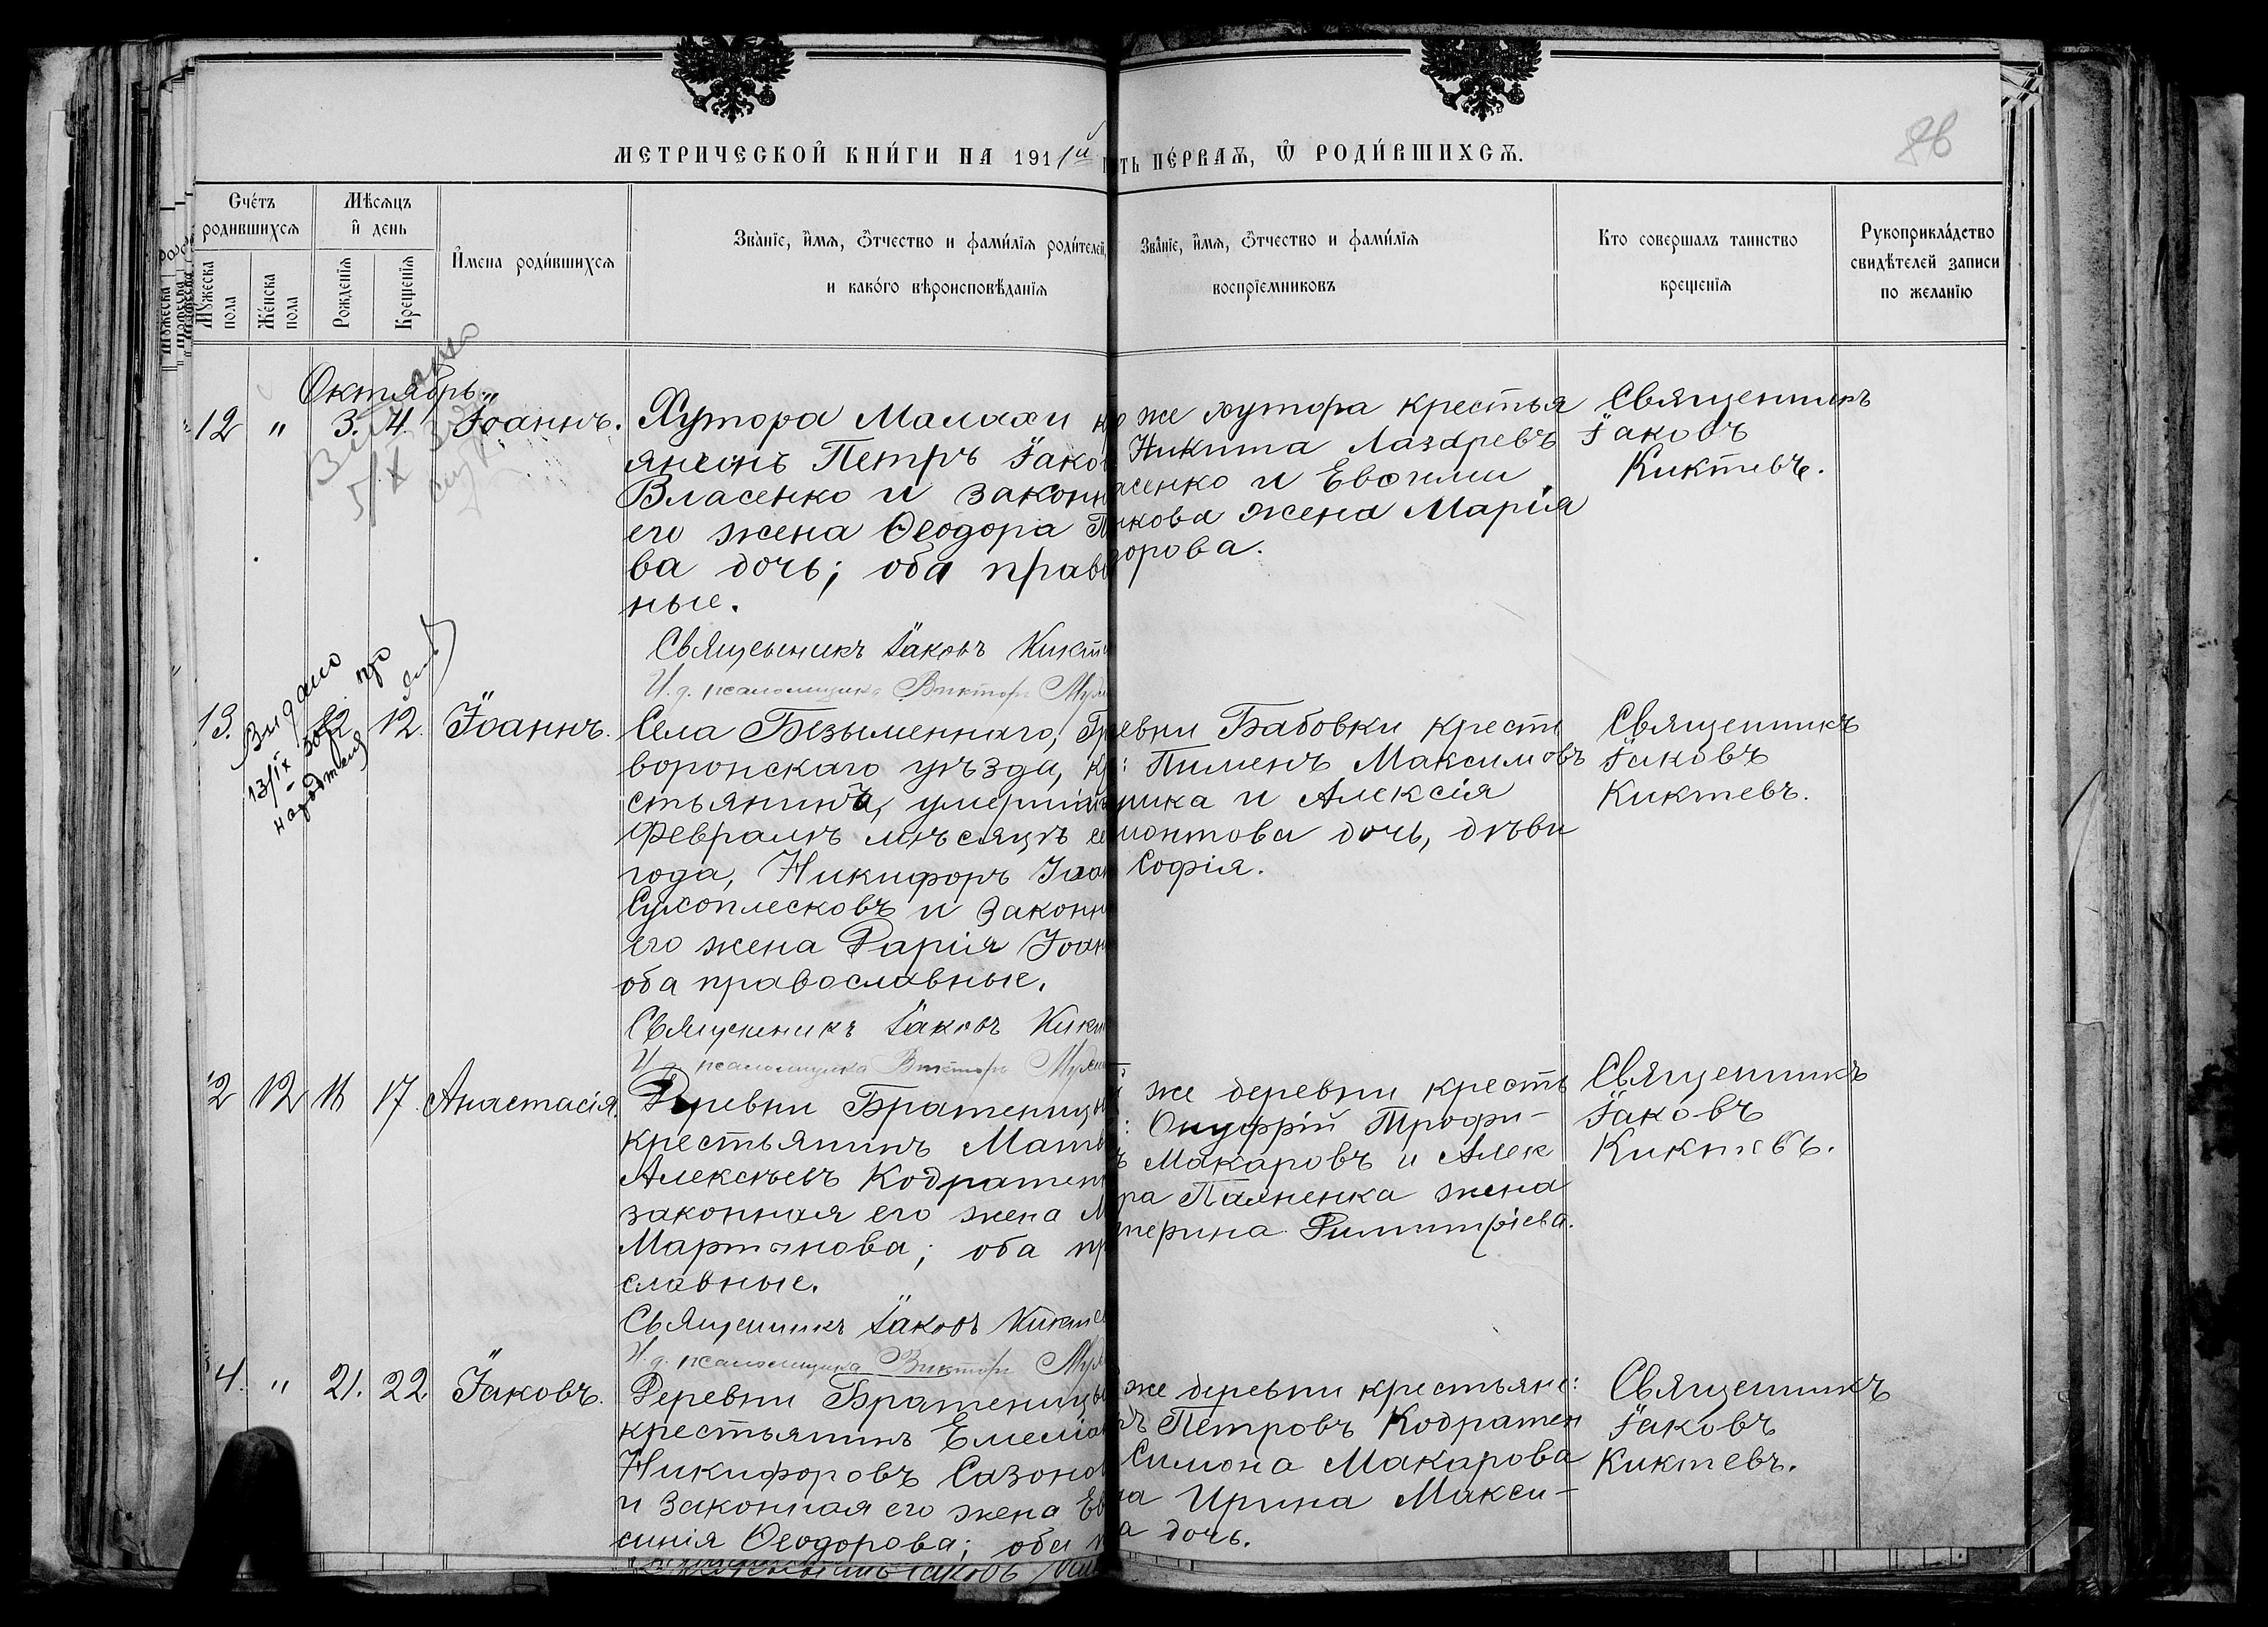 МЕТРИЧЕСКОЙ КНИ́ГИ НА 1911й
ть ПЕ́РВАѦ, Ѿ РОДИ́ВШИХСѦ.
Сче́тъ родившихсѧ
Мꙋжеска пола
Же́нска пола
Мѣсѧцъ и день
Рожденїѧ
Крещенїѧ
И҆мена роди́вшихсѧ
Зва́нїе, и҆́мѧ, ѻ҆́тчество и фами́лїѧ роди́телей,
и како́го вѣроисповѣ́данїѧ
Зва́нїе, и҆́мѧ, ѻ҆́тчество и фами́лїѧ
воспрїемниковъ
Кто совершалъ таинство
крещенїѧ
Рукоприкла́дство
свидѣ́телей записи
по жела́нїю
Октябрь
12 " 3. 4. Іоаннъ.
Хутора Малахи
янинъ Петръ Іаков
Власенко и законн
его жена Ѳеодора
ва дочь; оба прав
ные.
Священникъ Іаковъ Кикт
И. д. псаломщика Викторъ
же хутора крестья
Никита Лазаревъ
асенко и Евѳими
кова жена Марія
дорова.
Священникъ
Іаковъ
Киктевъ.
Видано
13/IX
13. 12. Іоаннъ.
Села Безыменнаго, Гр
воронскаго уѣзда, кр
стьянинъ, умершій
Февралѣ мѣсяцѣ се
года, Никифоръ Іоан
Сухоплесковъ и законн
его жена Дарія Іоан
оба православные.
Священникъ Іаковъ Кикт
И. д. псаломщика Викторъ
ревни Бабовки кресть
: Пименъ Максимовъ
рика и Алексія
монтова дочь, дѣви
Софія.
Священникъ
Іаковъ
Киктевъ.
12 17 Анастасія.
Деревни Братениц
крестьянинъ Матѳ
Алексѣевъ Кодратен
законная его жена М
Мартинова; оба пр
славные.
Священникъ Іаковъ Киктев
И. д. псаломщика Викторъ
же деревни кресть
: Онуфрій Трофи-
ъ Макаровъ и Алек
ра Паяненка жена
терина Димитріева.
Священникъ
Іаковъ
Киктевъ.
4. " 21. 22. Іаковъ.
Деревни Братениц
крестьянинъ Емеліан
Никифоровъ Сазоно
и законная его жена Ев
синія Ѳеодорова; оба
же деревни крестьяне:
ъ Петровъ Кодратен
Симона Макарова
на Ирина Макси-
а дочь.
Священникъ
Іаковъ
Киктевъ.